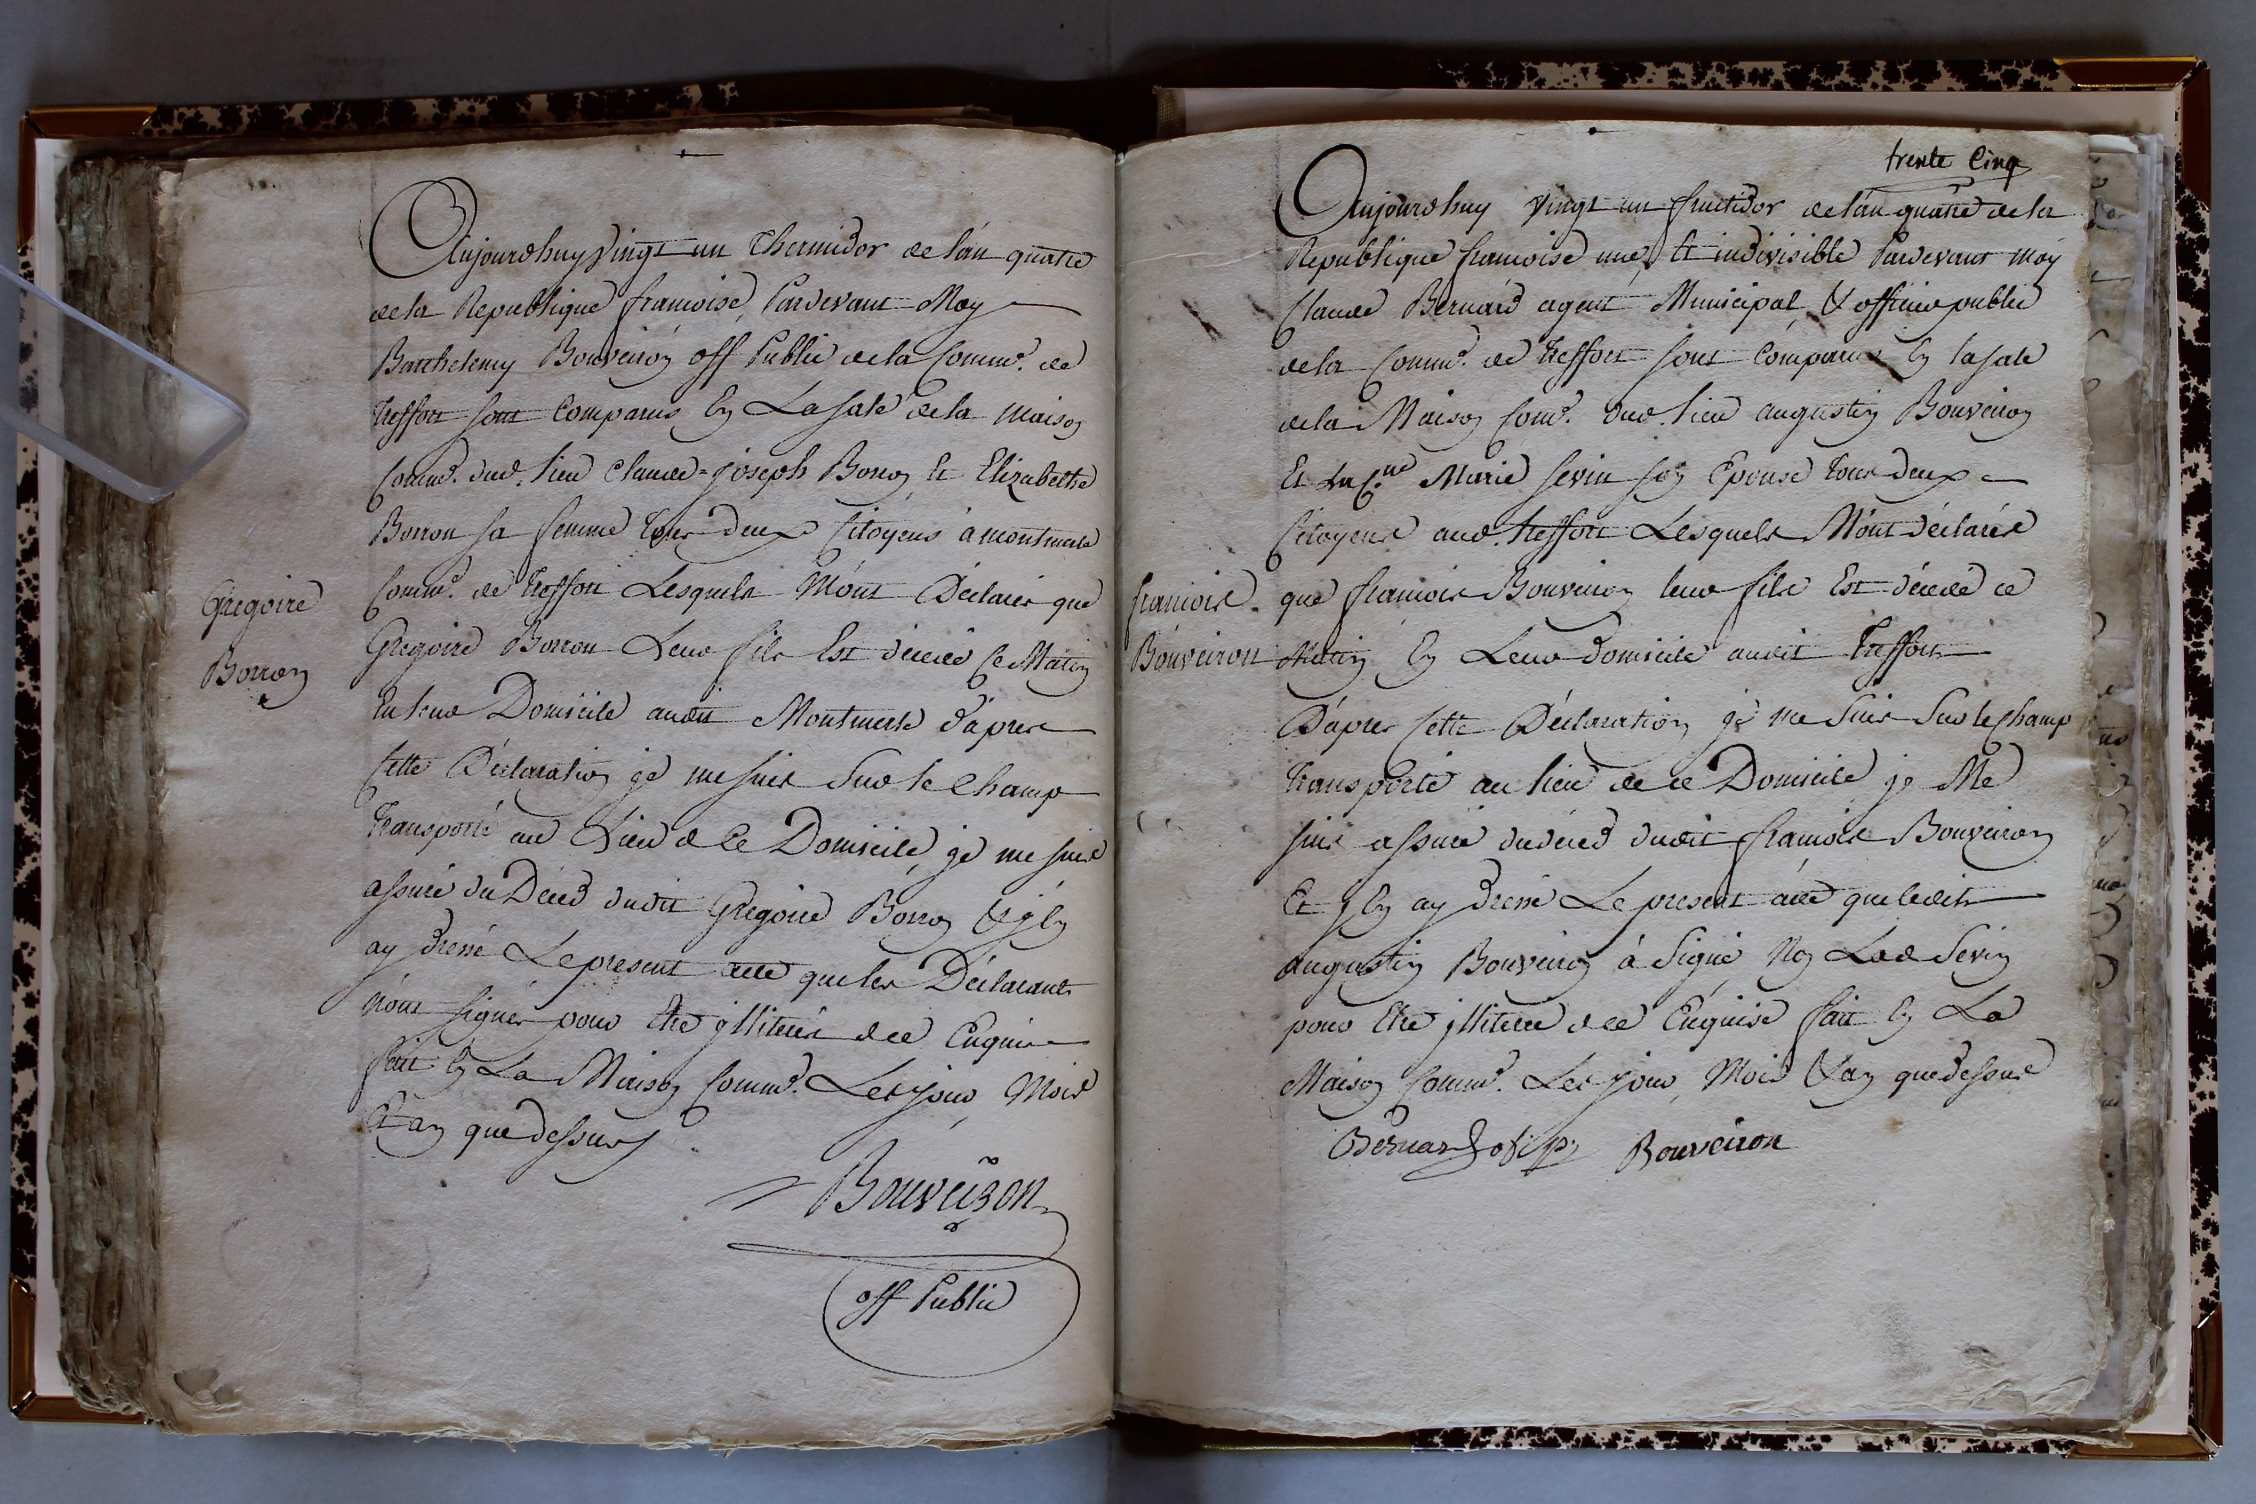 Aujourdhuy Vingt un Thermidor de lán quatre
de la Republique francoise, Pardevant Moy
Barthelemy Bouveiron off Public de la Comm.e de
treffort sont Comparus En La Sale de la Maison
Comm.e dud. lieu Claude-joseph Borron Et Elizabethe
Borron sa femme tous deux Citoyens á montmerle
Comm.e de treffort Lesquels M'ónt Déclarés que
Gregoire Borron Leur fils Est décedé Ce Matin
En leur Domicile audit Montmerle d'ápres
Cette Déclaration je me suis Sur le Champ
Transporté au Lieu de Ce Domicile, je me suis
assuré du Décéd dudit Gregoire Borron & j'En
ay Dressé Le present acte que les Déclarants
n'ónt signés pour Etre jlliterés de ce Enquis
fait En La Maison Comm.e Les jour, Mois
Et an que dessus
Gregoire
Borron
Bouveiron
off Public
trente Cinq
Aujourdhuy Vingt un fructidor de lán quatre de la
Republique francoise une, Et indivisible Pardevant Moy
Claude Bernard agent Municipal & officier public
de la Comm.e de treffort sont Comparus En la Sale
de la Maison Com.e dud. lieu augustin Bouveiron
Et La C.ne Marie sevin son Epouse tous deux
Citoyens aud. treffort Lesquels M'ónt déclarés
que francois Bouveiron leur fils Est décedé ce
Matin En Leur domicile audit treffort
D'ápres Cette Déclaration je me Suis Sur le Champ
transporté au lieu de ce Domicile je Me
suis assuré du déced dudit francois Bouveiron
Et j'En ay dressé Le present acte que ledit
augustin Bouveiron á Signé, Non Lad Sevin
pour Etre jlliterée de ce Enquise fait En La
Maison Comm.e Les jour, Mois & an que dessus
francois
Bouveiron
Bernard ofi p Bouveiron